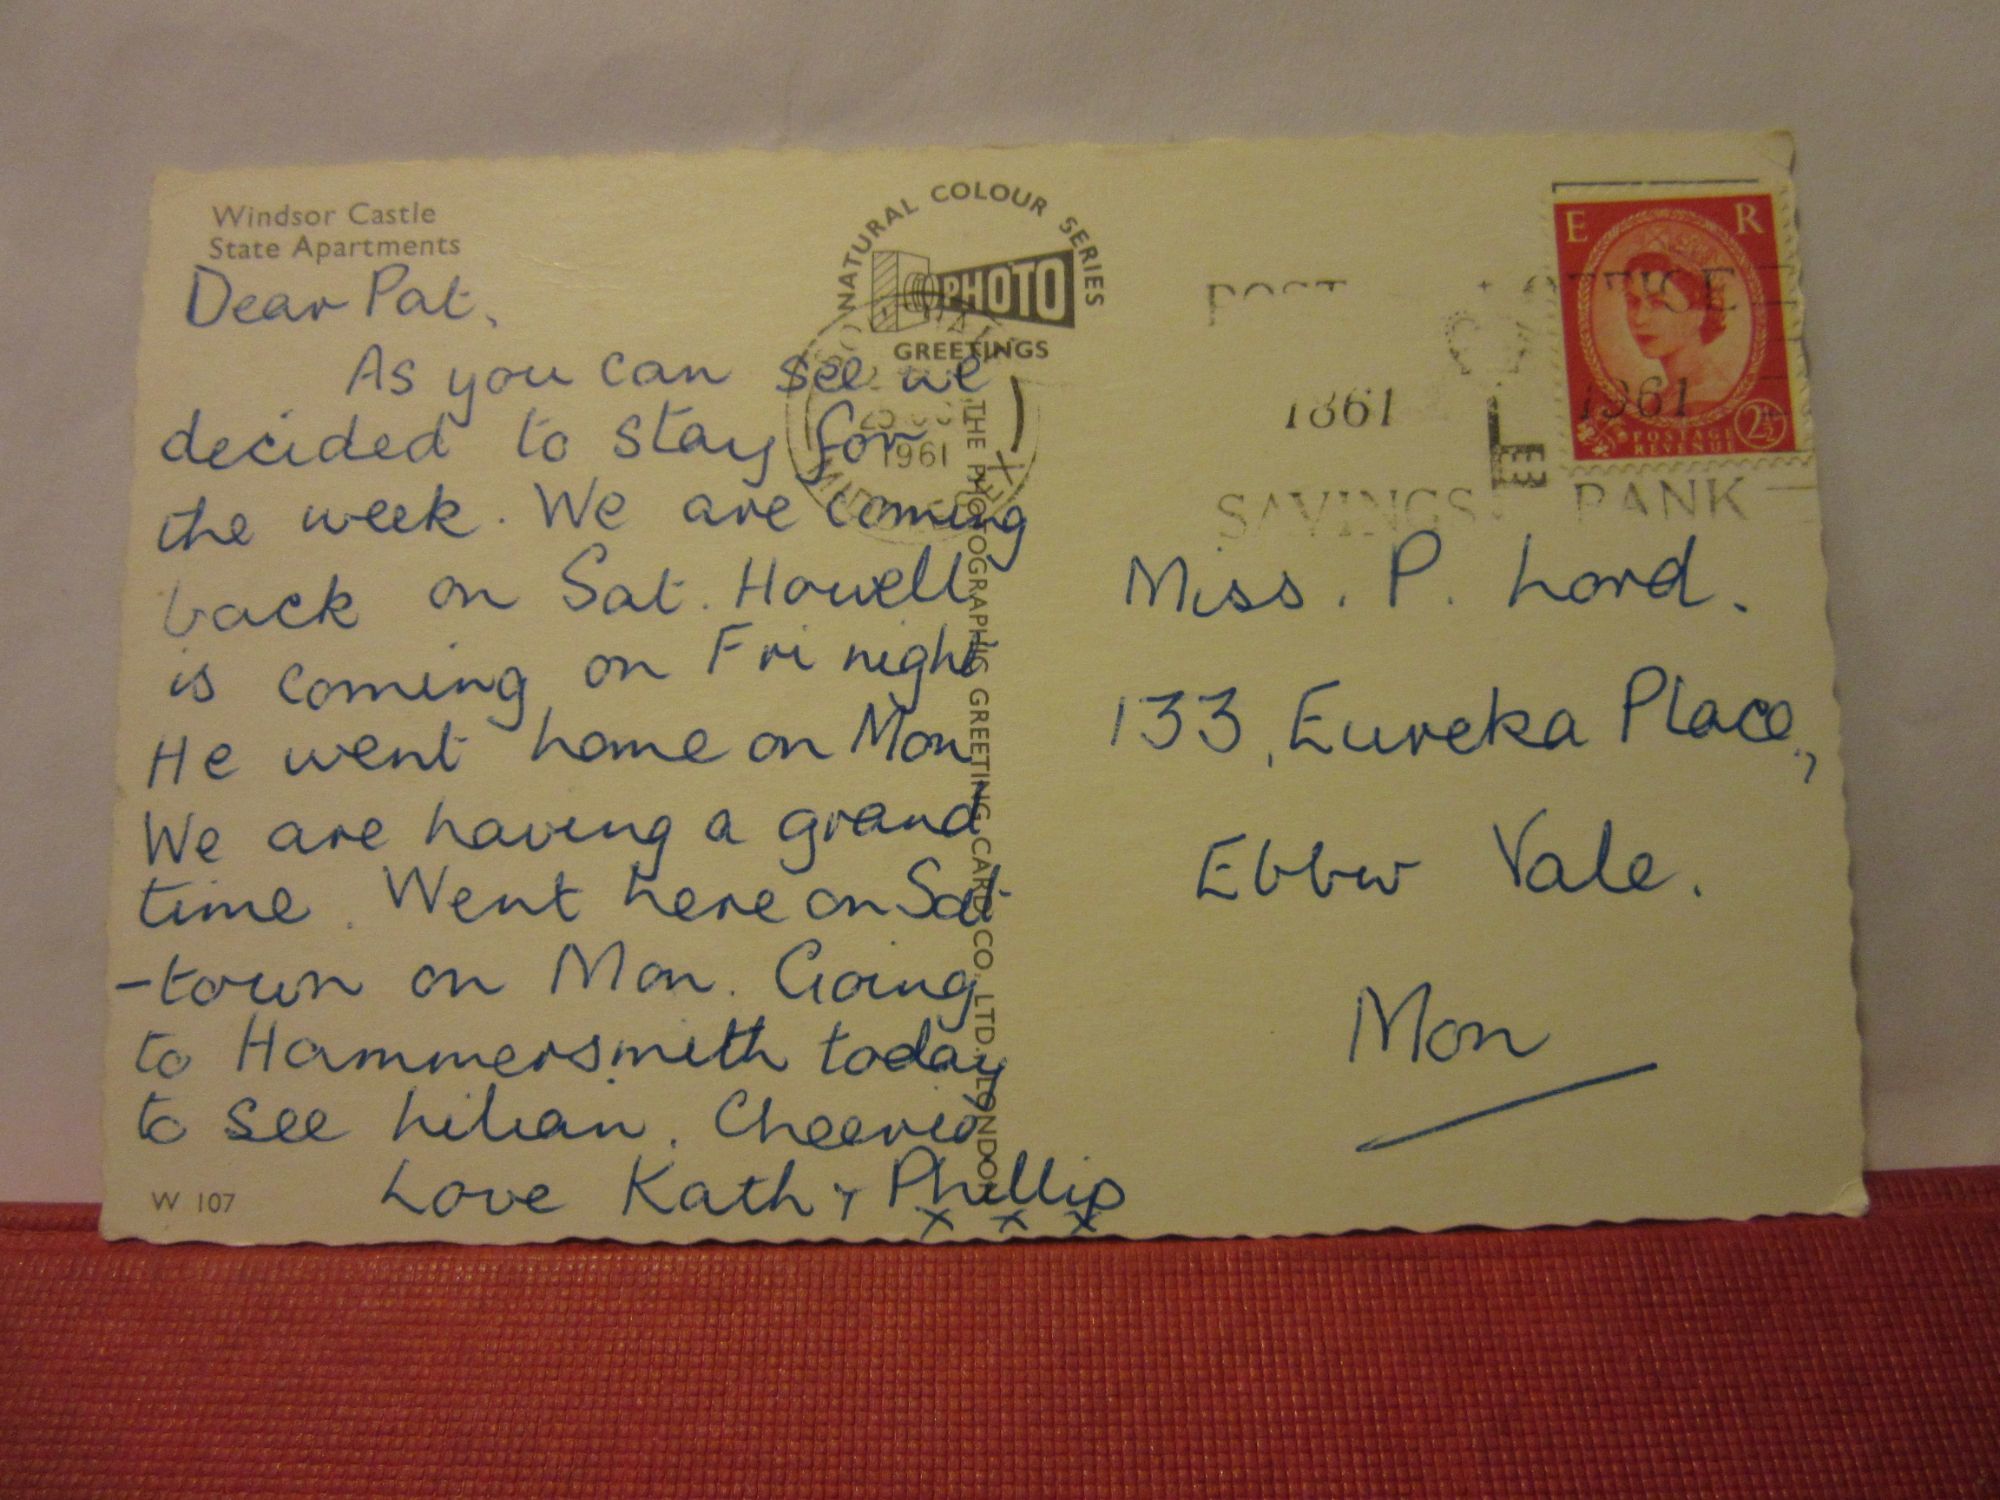 Windsor Castle
State Apartments
Dear Pat,
As you can see we
decided to stay for
the week. We are coming
back on Sat. Howell
is coming on Fri night
He went home on Mon
We are having a grand
time. Went here on Sat
-town on Mon. Going
to Hammersmith today
to see Lilian. Cheerio
Love Kath + Phillip
x x x
W 107
NATURAL COLOUR SERIES
PHOTO
GREETINGS
1961
THE PHOTOGRAPHIC GREETING CARD CO. LTD. LONDON
POST OFFICE
1861 1961
SAVINGS BANK
E R
POSTAGE
REVENUE
2½
Miss. P. Lord.
133, Eureka Place,
Ebbw Vale.
Mon